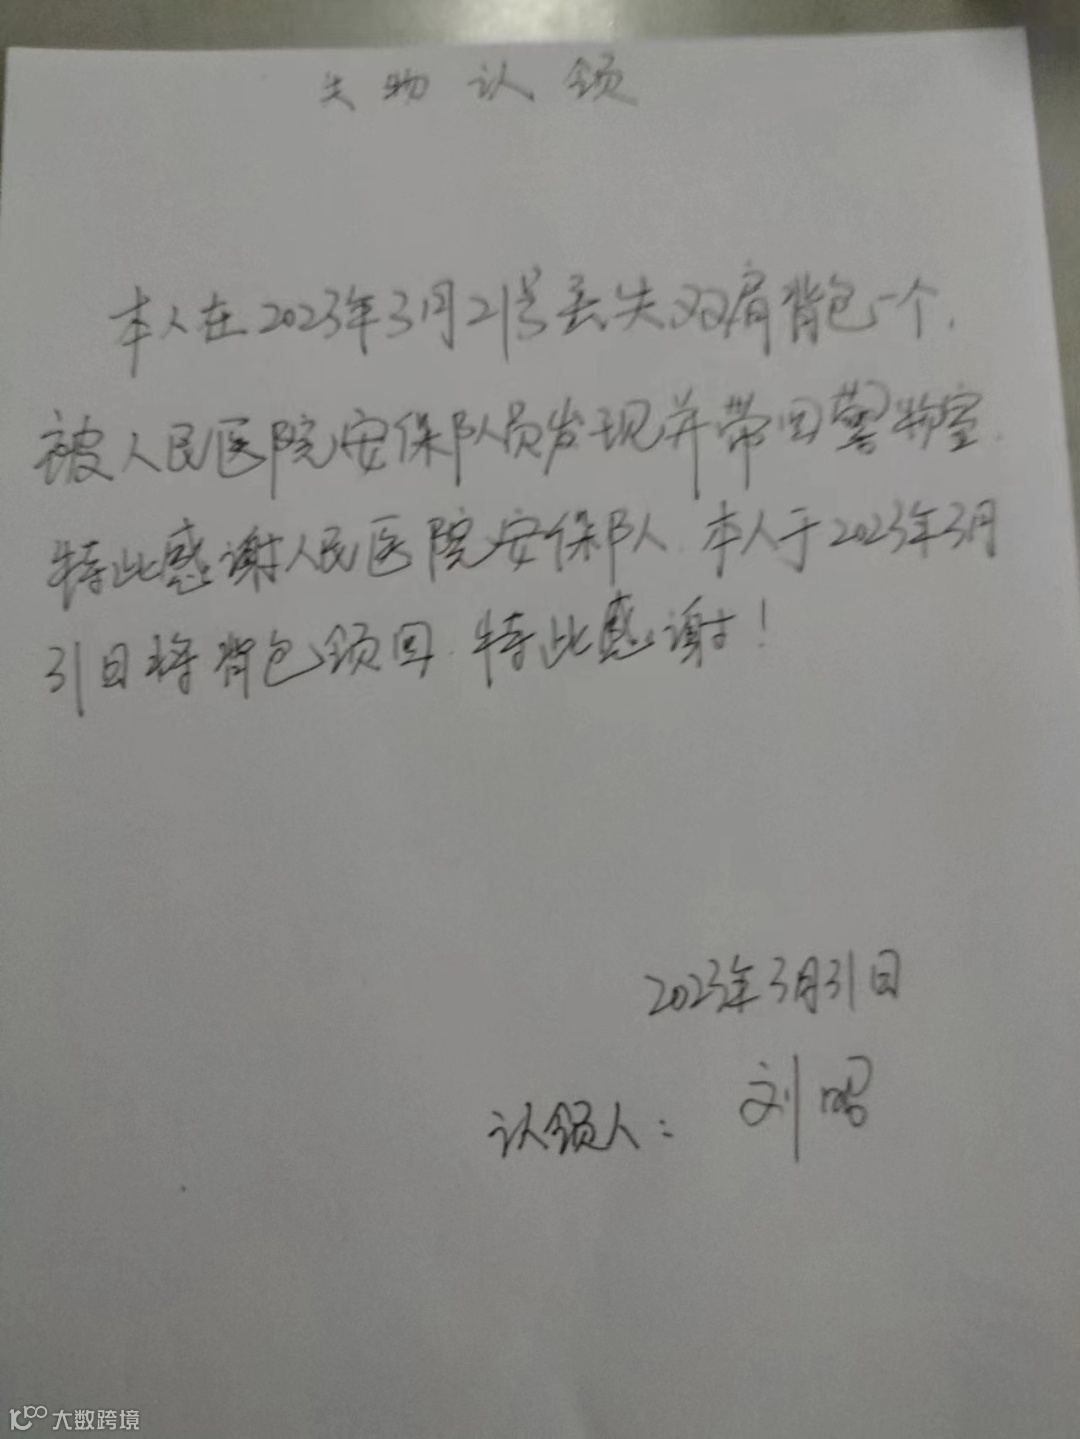 失物认领
本人在2023年3月21号丢失双肩背包一个,
被人民医院安保队员发现并带回警物室.
特此感谢人民医院安保队人.本人于2023年3月
31日将背包领回.特此感谢!
2023年3月31日
认领人: 刘昭
大数跨境